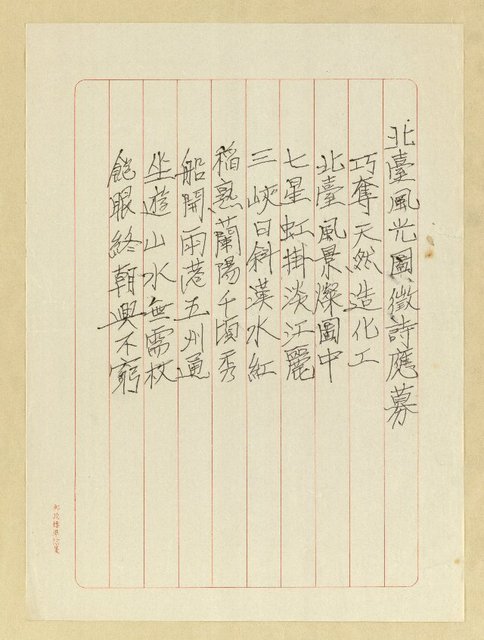 北臺風光圖徵詩應募
巧奪天然造化工
北臺風景燦圖中
七星虹掛淡江麗
三峽日斜漢水紅
稻熟蘭陽千頃秀
船開雨港五州通
坐遊山水無需杖
飽眼終朝興不窮